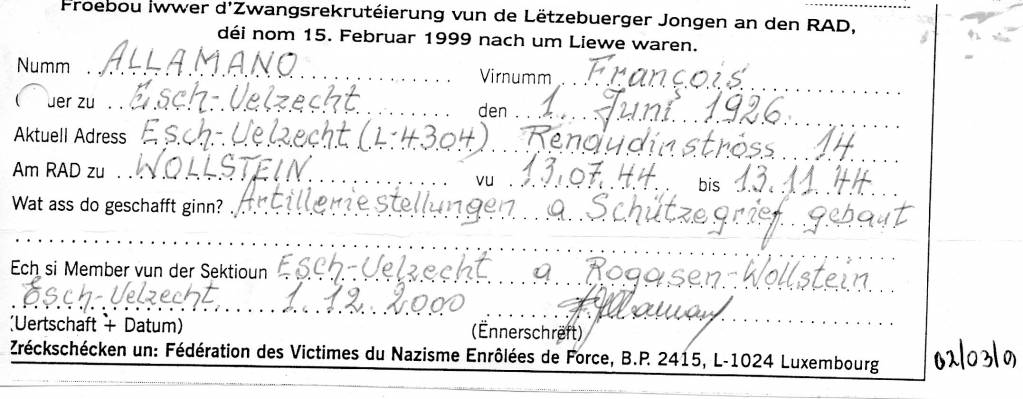 Froebou iwwer d'Zwangsrekrutéierung vun de Lëtzebuerger Jongen an den RAD,
déi nom 15. Februar 1999 nach um Liewe waren.
Numm ALLAMANO Virnumm François
uer zu Esch-Uelzecht den 1. Juni 1926
Aktuell Adress Esch-Uelzecht (L-4304) Renaudinströss 14
Am RAD zu WOLLSTEIN vu 13.07.44 bis 13.11.44
Wat ass do geschafft ginn? Artilleriestellungen a Schützegrief gebaut
Ech si Member vun der Sektioun Esch-Uelzecht a Rogasen-Wollstein
Esch-Uelzecht, 1.12.2000 F. Allamano
(Uertschaft + Datum) (Ënnerschrëft)
Zréckschécken un: Fédération des Victimes du Nazisme Enrôlées de Force, B.P. 2415, L-1024 Luxembourg
02/03/01